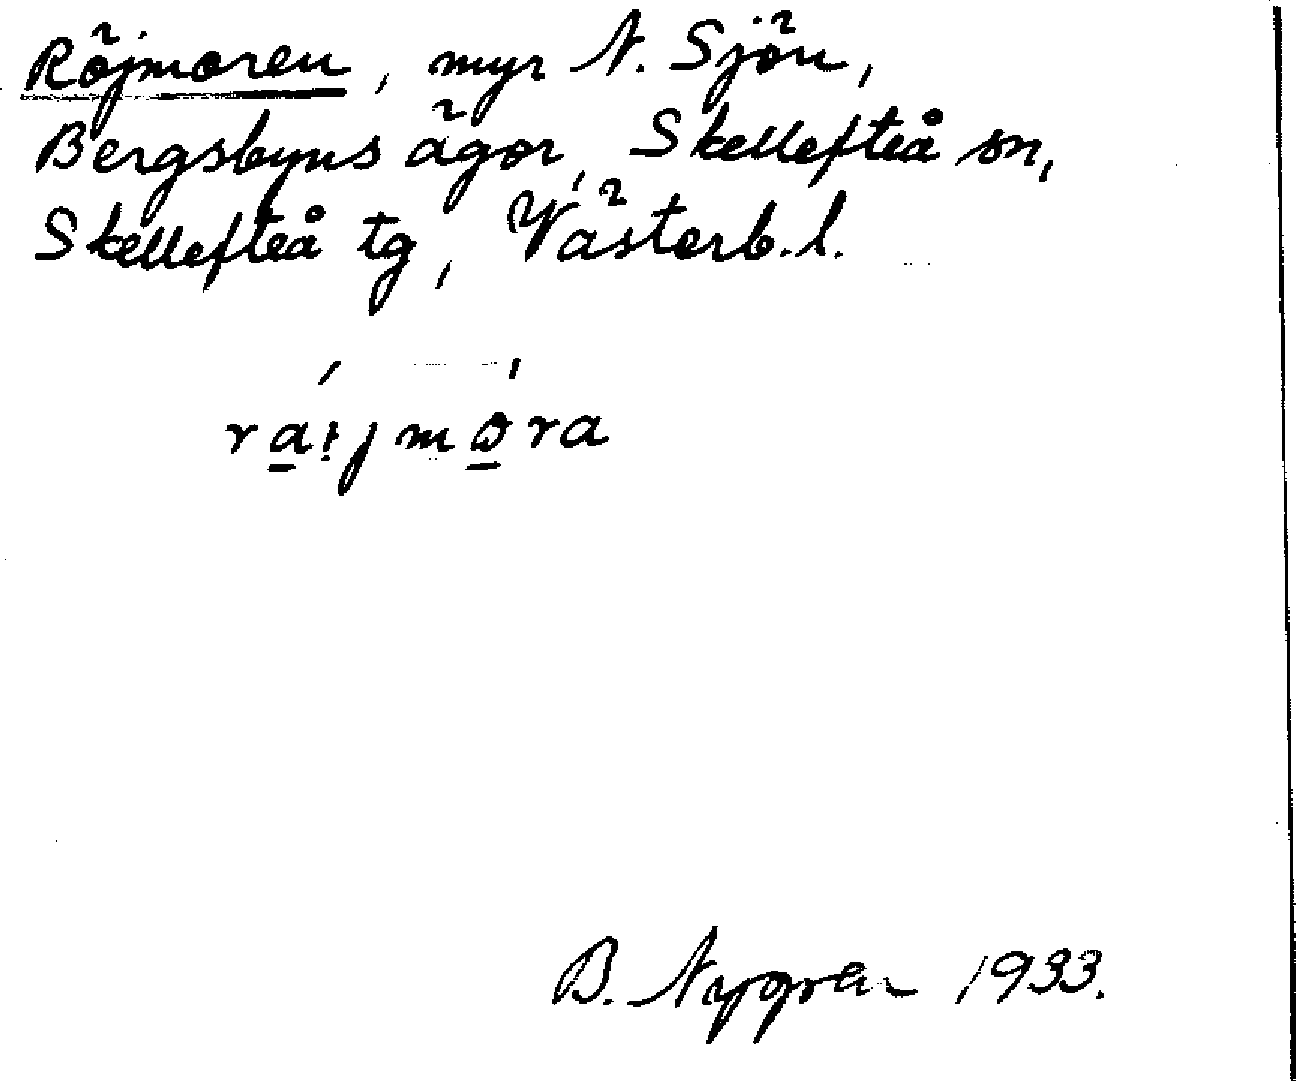 Röjmoren, myr N. Sjön,
Bergsbyns ägor, Skellefteå sn,
Skellefteå tg, Västerb. l.
rá̱:jmò̱ra
B. Nygren 1933.